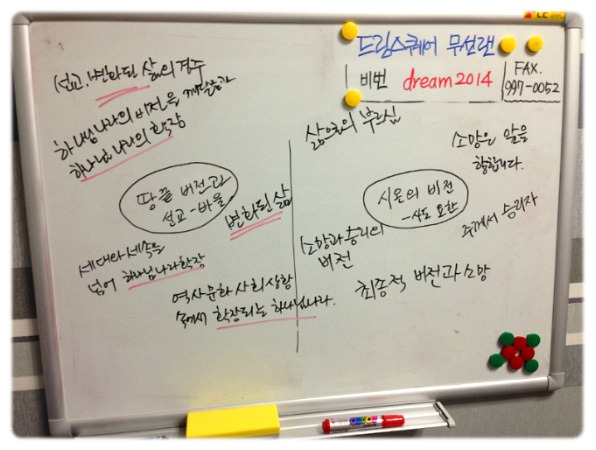 드림스퀘어 무선랜
비번 dream2014
FAX.
997-0052
선교, 변화된 삶의 경주
하나님나라의 비전을
하나님 나라의 확장
땅끝 비전과
선교 - 바울
변화된 삶
세대와 세속을
넘어 하나님나라 확장
역사 문화 사회 상황
속에서 확장되는 하나님나라.
삶으로의 부르심
소망은 앞을
향합니다.
시온의 비전
- 사도 요한
주께서 승리자
소망과 승리의
비전
최종적 비전과 소망